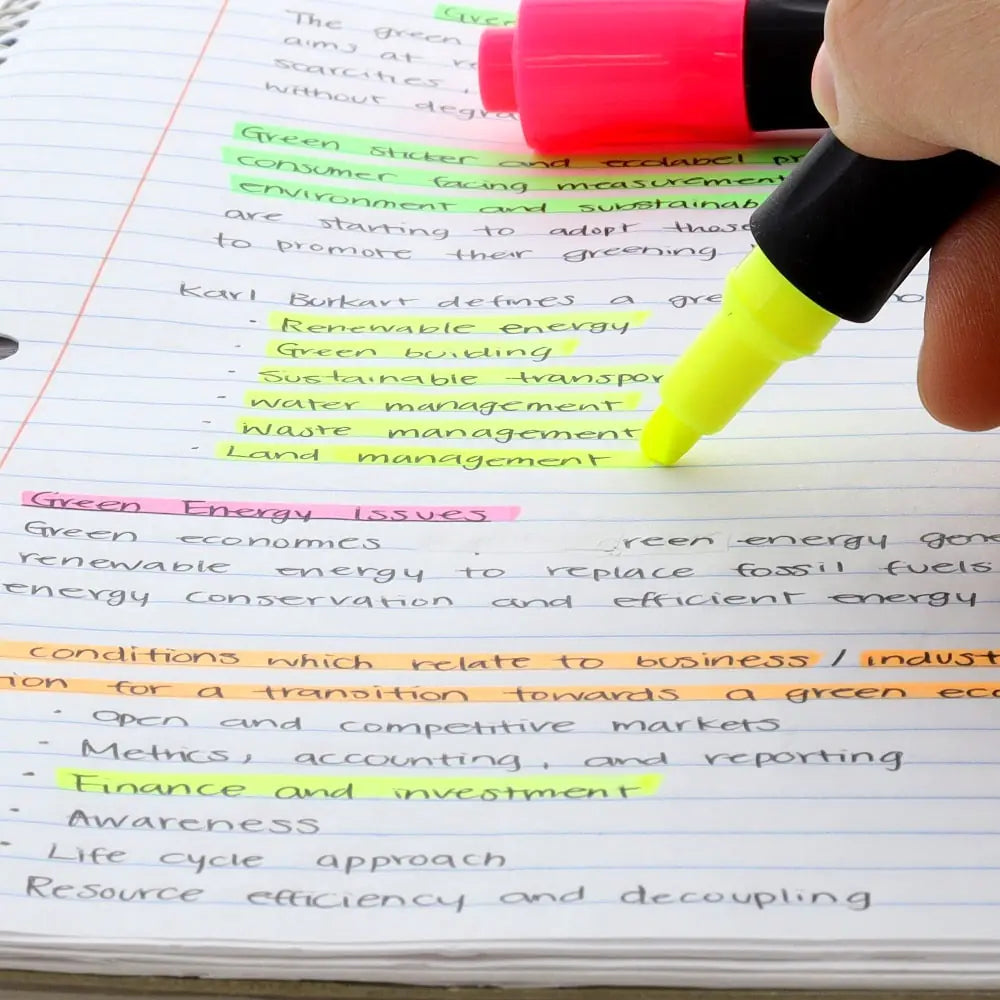 The green
aims at
scarcities,
without
Green sticker and ecolabel
consumer facing measurement
environment and substainab
are starting to adopt these
to promote their greening
Karl Burkart defines a
· Renewable energy
· Green building
· Sustainable transpor
· water management
· Waste management
· Land management
Green Energy Issues
Green economies reen energy gene
renewable energy to replace fossil fuels
energy conservation and efficient energy
conditions which relate to business / indust
ion for a transition towards a green eco
· Open and competitive markets
- Metrics, accounting, and reporting
- Finance and investment
· Awareness
· Life cycle approach
Resource efficiency and decoupling